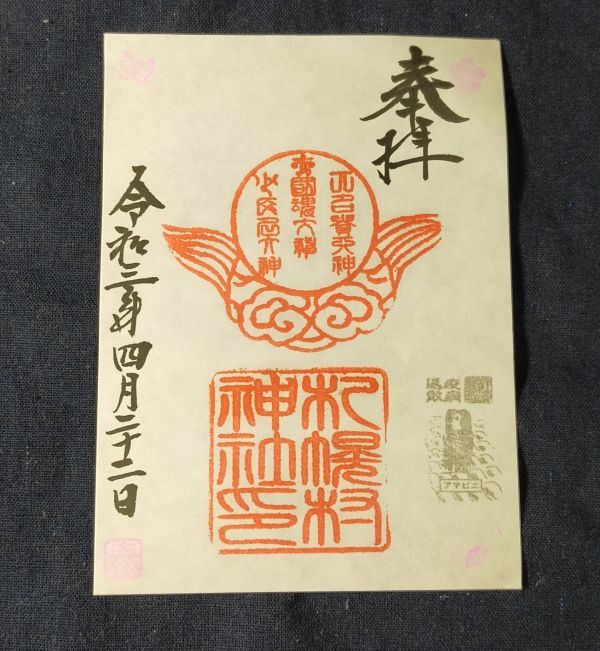 奉拝
大己貴大神
大国魂大神
少彦名大神
札幌村
神社印
疫病
退散
アマビエ
令和三年四月二十二日
春